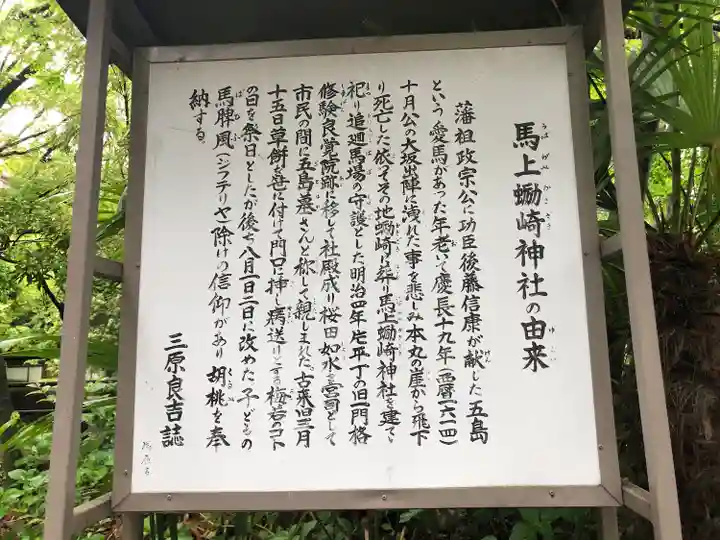 馬上蛎崎神社の由来
藩祖政宗公に功臣後藤信康が献じた五島
という愛馬があった年老いて慶長十九年(西暦一六一四)
十月公の大坂出陣に洩れた事を悲しみ本丸の崖から飛下
り死亡した依ってその地蛎崎に葬り馬上蛎崎神社を建てゝ
祀り追廻馬場の守護とした明治四年片平丁の旧一門格
修験良覚院跡に移して社殿成り桜田如水を宮司として
市民の間に五島墓さんと称して親しまれた。古来旧三月
十五日草餅を苞に付けて門口に挿し病送りとする梅若のコト
の日を祭日としたが後ち八月一日二に改めた子どもの
馬脾風(ジフテリヤ)除けの信仰があり胡桃を奉
納する。
三原良吉誌